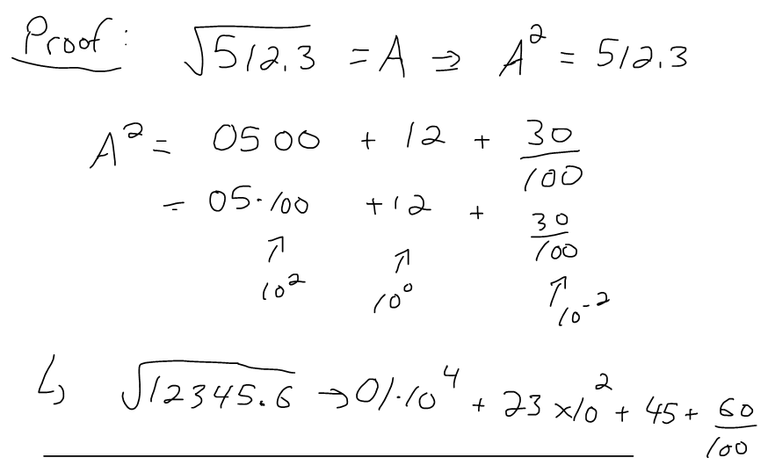 Proof: √512.3 = A ⇒ A² = 512.3
A² = 0500 + 12 + 30/100
= 05·100 + 12 + 30/100
↑ ↑ ↑
10² 10⁰ 10⁻²
↳ √12345.6 → 01·10⁴ + 23×10² + 45 + 60/100